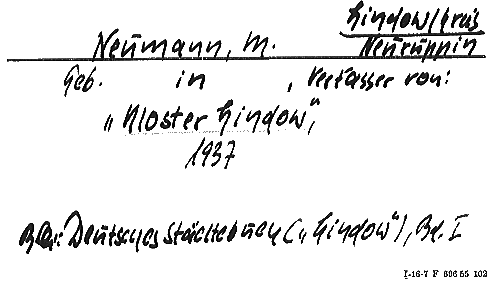 Lindow/Kreis
Neumann, M. Neuruppin
Geb. in , Verfasser von:
„Kloster Lindow",
1937
Deutsches Städtebuch („Lindow"), Bd. I
I-16-7 F 606 55 102